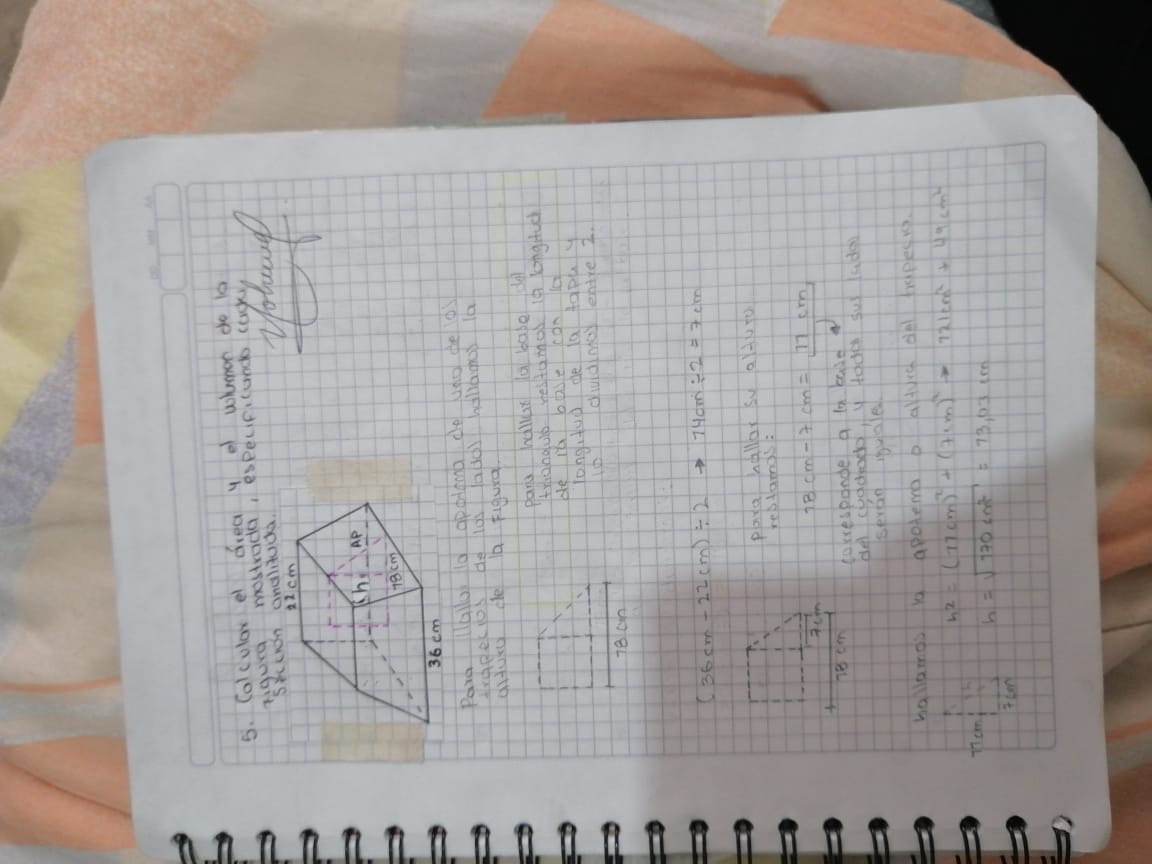 5. Calcular el área y el volumen de la
figura mostrada, especificando cada
sección analizada.
22 cm
h
AP
18cm
36 cm
Para hallar la apotema de uno de los
trapecios de los lados hallamos la
altura de la figura.
para hallar la base del
triangulo restamos la longitud
de la base con la
longitud de la tapa y
lo dividimos entre 2.
18 cm
(36cm - 22cm) ÷ 2 → 14cm ÷ 2 = 7 cm
para hallar su altura
restamos:
7cm
18 cm
18 cm - 7 cm = 11 cm
corresponde a la base
del cuadrado, y todos sus lados
serán iguales.
hallamos la apotema o altura del trapecio.
h2 = (11cm)² + (7cm)² → 121cm² + 49cm²
11cm
h = √170 cm² = 13,03 cm
7cm